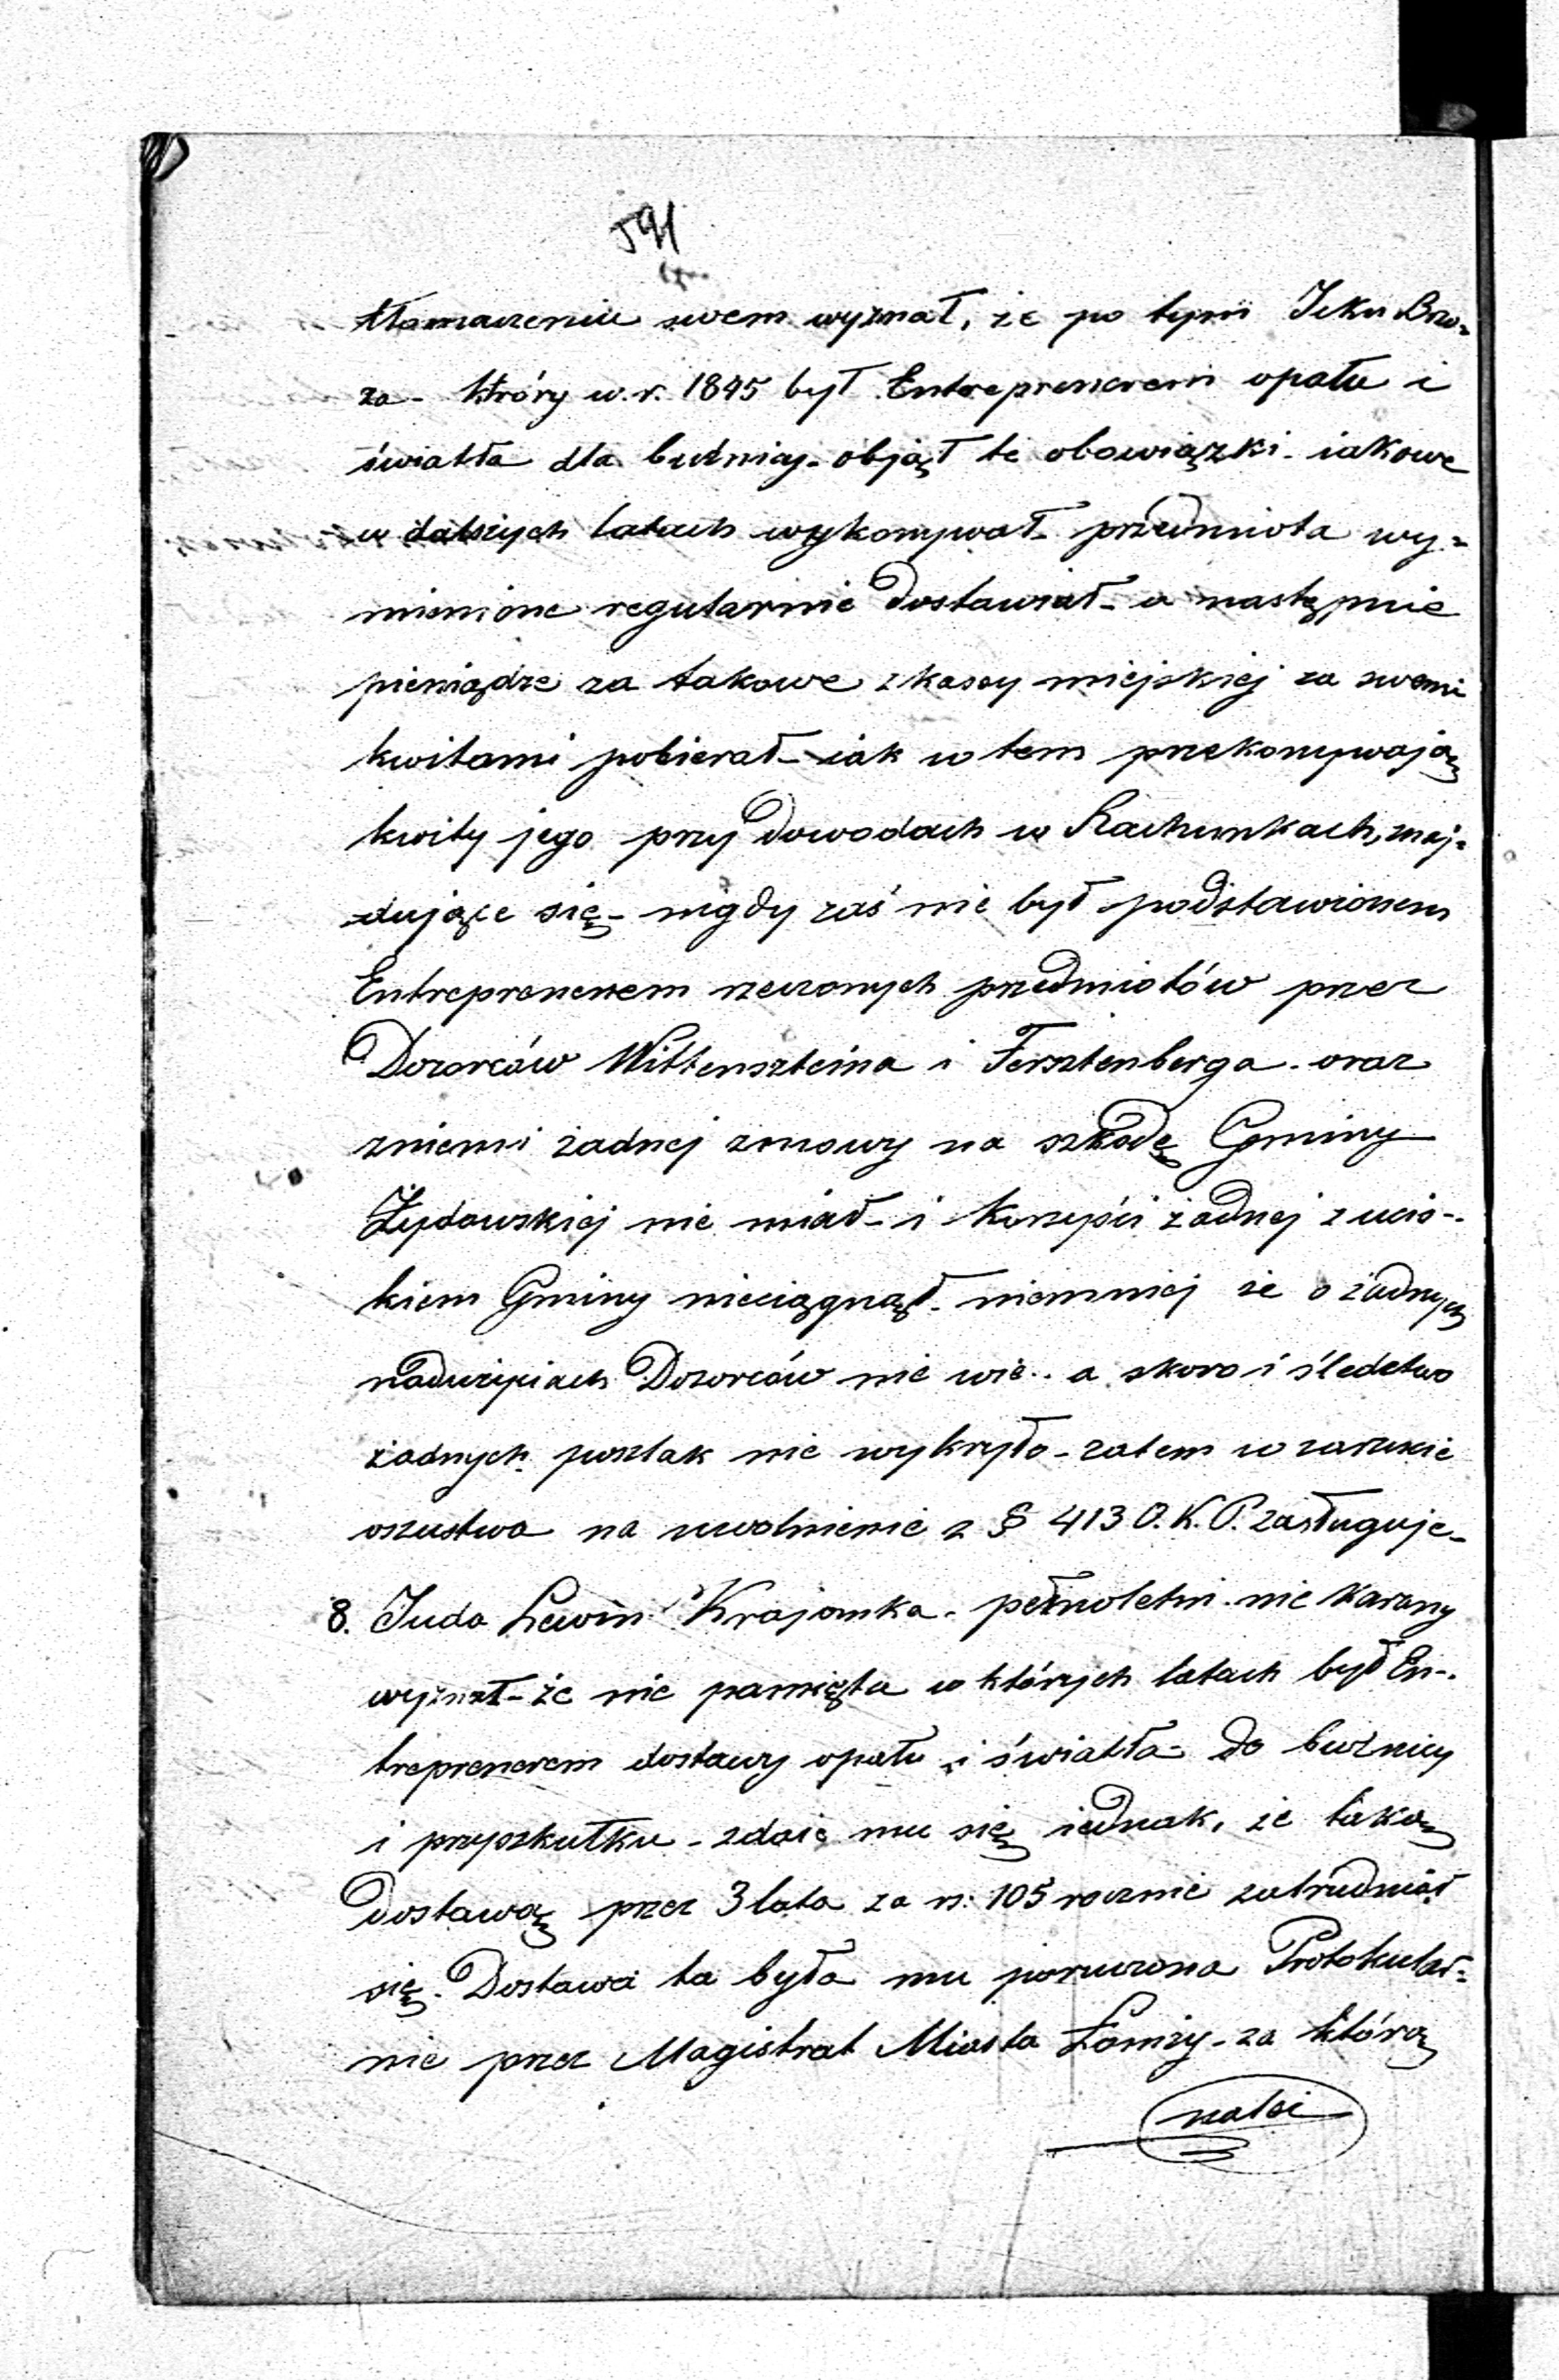 591
tłomaczeniu swem wyznał, że po tym Icku Brzo-
za - który w. r. 1845 był Entreprenerem opału i
światła dla buźnicy - objął te obowiązki - iakowe
w dalszych latach wykonywał - przedmiota wy-
mienione regularnie dostawiał - a następnie
pieniądze za takowe z kassy miejskiej za swemi
kwitami pobierał - iak w tem przekonywają
kwity jego przy dowodach w Rachunkach, znaj-
dujące się - nigdy zaś nie był podstawionem
Entreprenerem rzeczonych przedmiotów przez
Dozorców Wittenszteina i Fersztenberga - oraz
zniemi żadnej zmowy na szkodę Gminy
Żydowskiej nie miał - i korzyści żadnej z ucis-
kiem Gminy nieciągnął - niemniej że o żadnych
nadużyciach Dozorców nie wie - a skoro i śledctwo
żadnych poszlak nie wykryło - zatem w zarzucie
oszustwa na uwolnienie z § 413 O. K. P. zasługuje -
8. Juda Lewin Krajanka - pełnoletni - nie karany
wyznał - że nie pamięta w których latach był En-
treprenerem dostawy opału i światła - do buźnicy
i przyszkułku - zdaie mu się iednak, że taką
dostawą przez 3 lata za rs: 105 rocznie zatrudniał
się. Dostawa ta była mu poruczona Protokular-
nie przez Magistrat Miasta Łomży - za którą